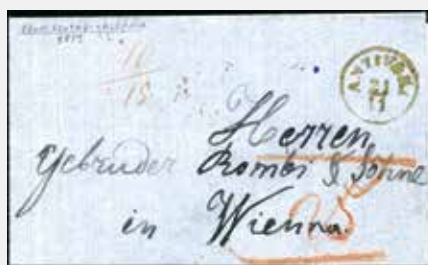 10
15
ANTIVARI
21
11
Herren
Gebruder Rombo & Söhne
in Wienna.
25